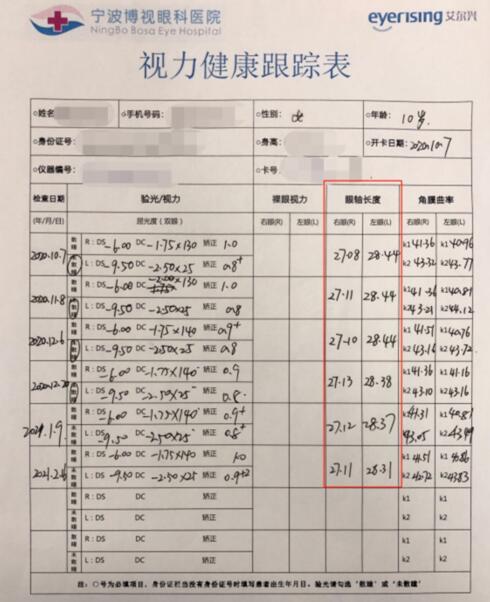 宁波博视眼科医院
NingBo Bosa Eye Hospital
eyerising 艾尔兴
视力健康跟踪表
○姓名 ○手机号码: ○性别: ○年龄: 10岁
○身份证号: ○身高: ○开卡日期: 2020.10.7
○仪器编号: ○卡号
检查日期 验光/视力 裸眼视力 眼轴长度 角膜曲率
(年/月/日) 屈光度(双眼) 右眼(R) 左眼(L) 右眼(R) 左眼(L) 右眼(R) 左眼(L)
2020.10.7 散瞳 R:DS -6.00 DC -1.75×130 矫正 1.0 27.08 28.44 k1 41.36 k1 40.96
未散瞳 L:DS -9.50 DC -2.50×25 矫正 0.8+ k2 43.32 k2 43.77
2020.11.8 散瞳 R:DS -6.00 DC -2.00×130 矫正 1.0 27.11 28.44 k1 41.36 k1 40.81
未散瞳 L:DS -9.50 DC -2.50×25 矫正 0.8 k2 43.21 k2 44.12
2020.12.6 散瞳 R:DS -6.00 DC -1.75×140 矫正 0.9+ 27.10 28.44 k1 41.51 k1 40.76
未散瞳 L:DS -9.50 DC -2.50×25 矫正 0.8 k2 43.16 k2 43.72
2020.12.20 散瞳 R:DS -6.00 DC -1.75×140° 矫正 0.9 27.13 28.38 k1 41.36 k1 41.16
未散瞳 L:DS -9.50 DC -2.50×25° 矫正 0.8 k2 43.10 k2 43.16
2021.1.9 散瞳 R:DS -6.00 DC -1.75×140° 矫正 0.9+ 27.12 28.37 k1 41.31 k1 40.81
未散瞳 L:DS -9.50 DC -2.50×25° 矫正 0.8+ k2 43.05 k2 43.99
2021.2.6 散瞳 R:DS -6.00 DC -1.75×140 矫正 1.0 27.11 28.31 k1 41.51 k1 40.86
未散瞳 L:DS -9.50 DC -2.50×25 矫正 0.9+2 k2 42.72 k2 43.83
散瞳 R:DS DC 矫正 k1 k1
未散瞳 L:DS DC 矫正 k2 k2
散瞳 R:DS DC 矫正 k1 k1
未散瞳 L:DS DC 矫正 k2 k2
注:○号为必填项目、身份证栏当没有身份证号时填写患者出生年月日。验光请勾选“散瞳”或“未散瞳”